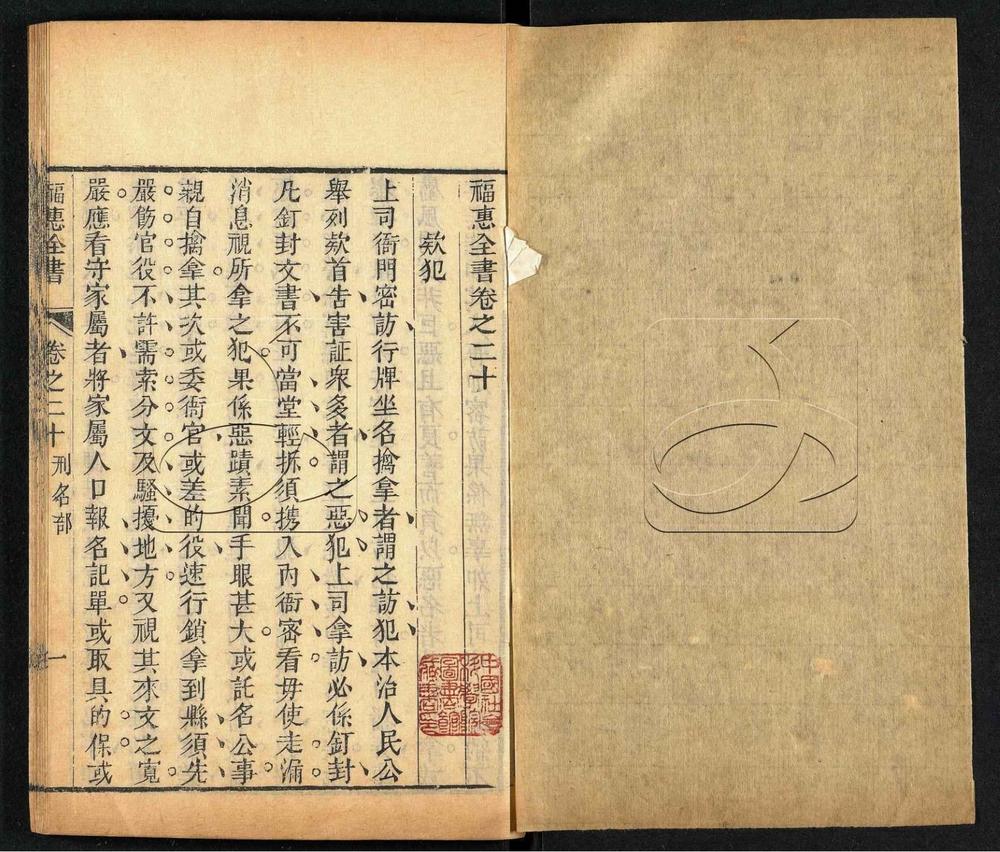 福惠全書卷之二十
欵犯
上司衙門密訪行牌坐名擒拿者謂之訪犯本治人民公
舉列欵首告害証衆多者謂之惡犯上司拿訪必係釘封
凡釘封文書不可當堂輕拆須携入內衙密看毋使走漏
消息視所拿之犯果係惡蹟素聞手眼甚大或託名公事
親自擒拿其次或委衙官或差的役速行鎖拿到縣須先
嚴飭官役不許需索分文及騷擾地方又視其來文之寬
嚴應看守家屬者將家屬人口報名記單或取具的保或
福惠全書
卷之二十
刑名部
一
中國社會
科學院
圖書館
藏書